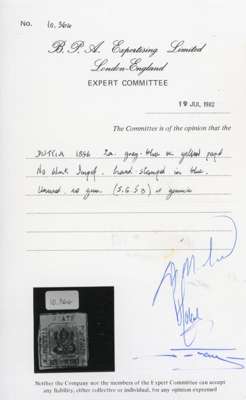 No. 10,364
B. P. A. Expertising Limited
London-England
EXPERT COMMITTEE
19 JUL 1982
The Committee is of the opinion that the
1846 2a. grey-blue on yellow
No blank hand stamped in blue,
Unused, no gum (S.G. S3) is genuine
10,364
Neither the Company nor the members of the Expert Committee can accept
any liability, either collective or individual, for any opinion expressed